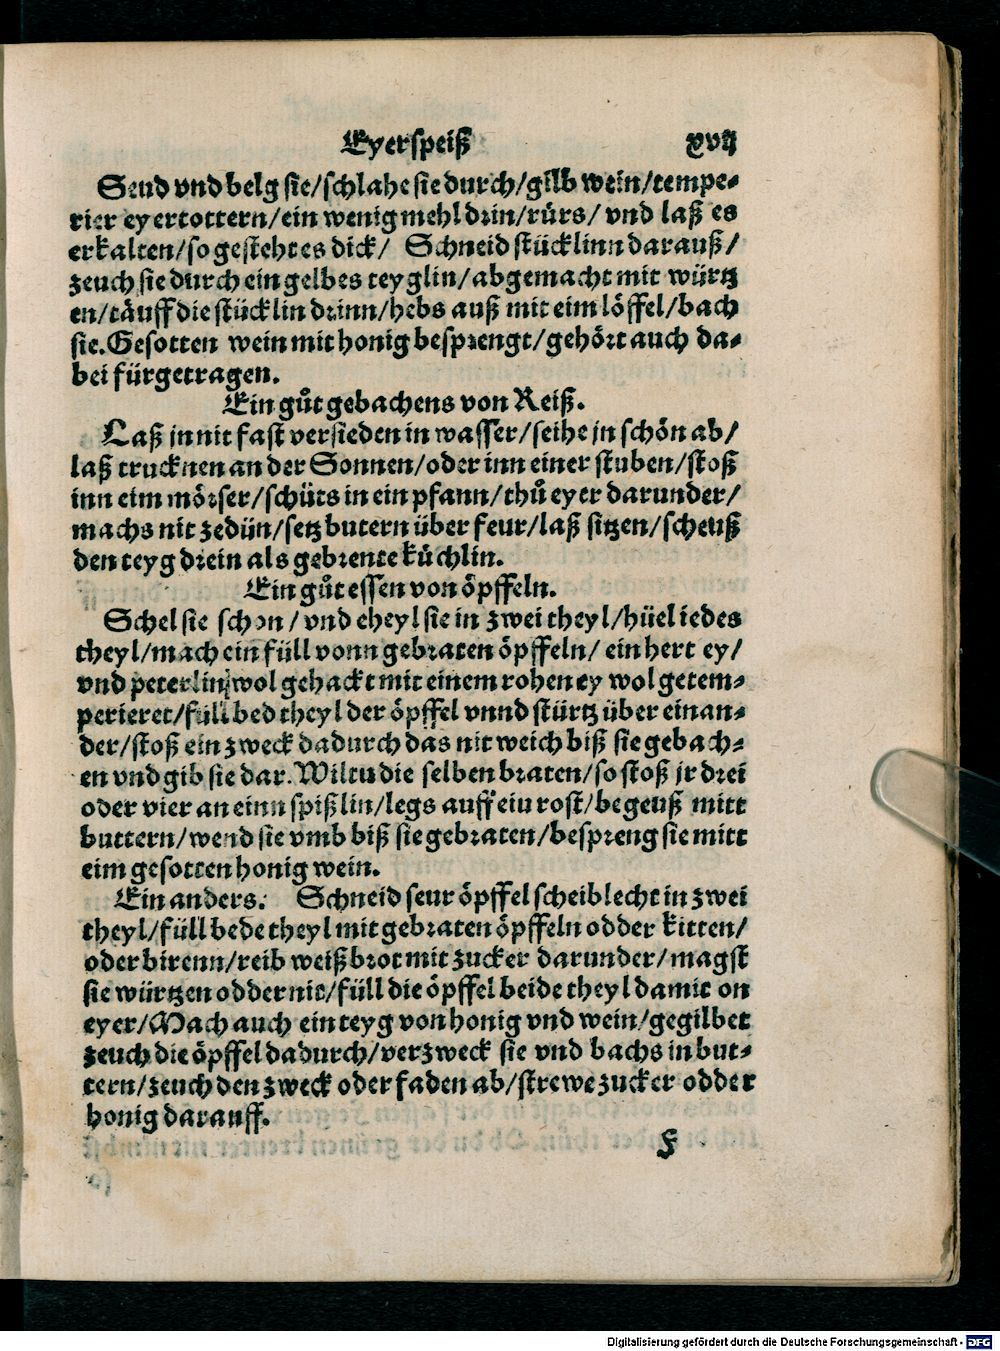 Eyerspeiß xvij
Seud vnd belg sie/schlahe sie durch/gilb wein/tempe⸗
rier eyertottern/ein wenig mehl drin/rürs/ vnd laß es
erkalten/so gesteht es dick/ Schneid stücklinn darauß/
zeuch sie durch ein gelbes teyglin/abgemacht mit würtz
en/täuff die stücklin drinn/hebs auß mit eim löffel/bach
sie. Gesotten wein mit honig besprengt/gehört auch da⸗
bei fürgetragen.
Ein gůt gebachens von Reiß.
Laß jn nit fast versieden in wasser/seihe jn schön ab/
laß trucknen an der Sonnen/oder inn einer stuben/stoß
inn eim mörser/schüts in ein pfann/thů eyer darunder/
machs nit zedün/setz butern über feur/laß sitzen/scheuß
den teyg drein als gebrente küchlin.
Ein gůt essen von öpffeln.
Schel sie schon/ vnd theyl sie in zwei theyl/hüel iedes
theyl/mach ein füll vonn gebraten öpffeln/ ein hert ey/
vnd peterlin/wol gehackt mit einem rohen ey wol getem⸗
perieret/füll bed theyl der öpffel vnnd stürtz über einan⸗
der/stoß ein zweck dadurch das nit weich biß sie gebach⸗
en vnd gib sie dar. Wiltu die selben braten/so stoß jr drei
oder vier an einn spißlin/legs auff ein rost/begeuß mitt
buttern/wend sie vmb biß sie gebraten/bespreng sie mitt
eim gesotten honig wein.
Ein anders. Schneid seur öpffel scheiblecht in zwei
theyl/füll bede theyl mit gebraten öpffeln odder kitten/
oder birenn/reib weißbrot mit zucker darunder/magst
sie würtzen odder nit/füll die öpffel beide theyl damit on
eyer/Mach auch ein teyg von honig vnd wein/gegilbet
zeuch die öpffel dadurch/verzweck sie vnd bachs in but⸗
tern/zeuch den zweck oder faden ab/strewe zucker odder
honig darauff.
F
Digitalisierung gefördert durch die Deutsche Forschungsgemeinschaft - DFG